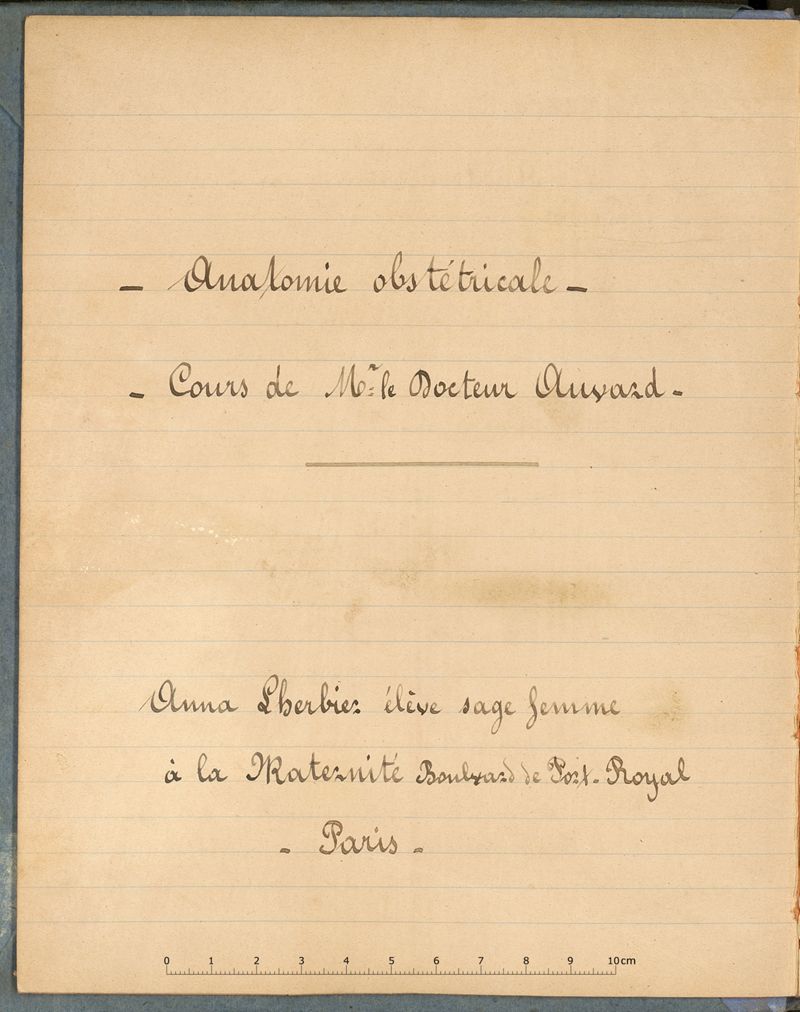 – Anatomie obstétricale –
– Cours de Mr le Docteur Auvard –
Anna Lherbier élève sage femme
à la Maternité Boulvard de Port-Royal
– Paris –
0 1 2 3 4 5 6 7 8 9 10 cm